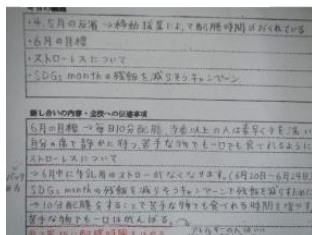 ・4, 5月の反省→移動授業によって配膳時間がおくれている
・6月の目標
・ストローレスについて
・SDGs monthの残飯を減らそうキャンペーン
話し合いの内容・全校への伝達事項
6月の目標→毎日10分配膳, 当番以上の人は素早く手を洗い
自分の席で静かに待つ, 苦手な物でも一口でも食べれるように
ストローレスについて
→6月中に牛乳用のストローがなくなります。(6月20日~6月24日)
SDGs monthの残飯を減らそうキャンペーンで残飯を減らすために
→10分配膳をすることで苦手な物でも食べれる時間を増やす
苦手な物でも一口はがんばる。